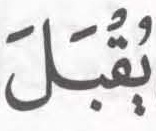 يُقْبَلَ